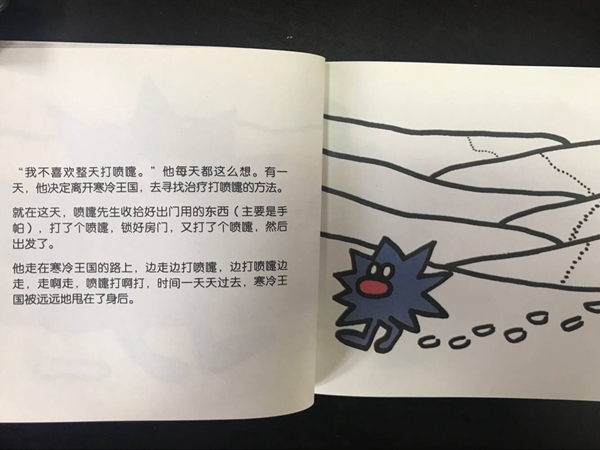 “我不喜欢整天打喷嚏。”他每天都这么想。有一
天，他决定离开寒冷王国，去寻找治疗打喷嚏的方法。
就在这天，喷嚏先生收拾好出门用的东西（主要是手
帕），打了个喷嚏，锁好房门，又打了个喷嚏，然后
出发了。
他走在寒冷王国的路上，边走边打喷嚏，边打喷嚏边
走，走啊走，喷嚏打啊打，时间一天天过去，寒冷王
国被远远地甩在了身后。